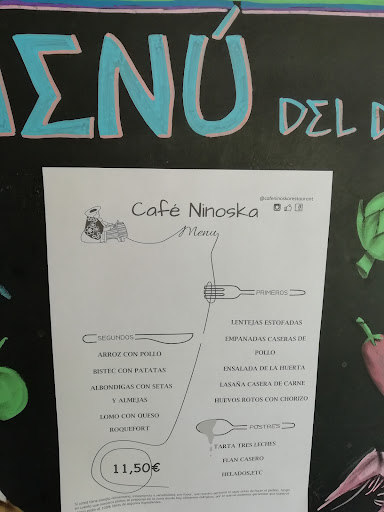 MENÚ
DEL D
@cafeninoskarestaurant
Café Ninoska
Menu
PRIMEROS
LENTEJAS ESTOFADAS
EMPANADAS CASERAS DE
POLLO
ENSALADA DE LA HUERTA
LASAÑA CASERA DE CARNE
HUEVOS ROTOS CON CHORIZO
SEGUNDOS
ARROZ CON POLLO
BISTEC CON PATATAS
ALBONDIGAS CON SETAS
Y ALMEJAS
LOMO CON QUESO
ROQUEFORT
POSTRES
TARTA TRES LECHES
FLAN CASERO
HELADOS,ETC
11,50€